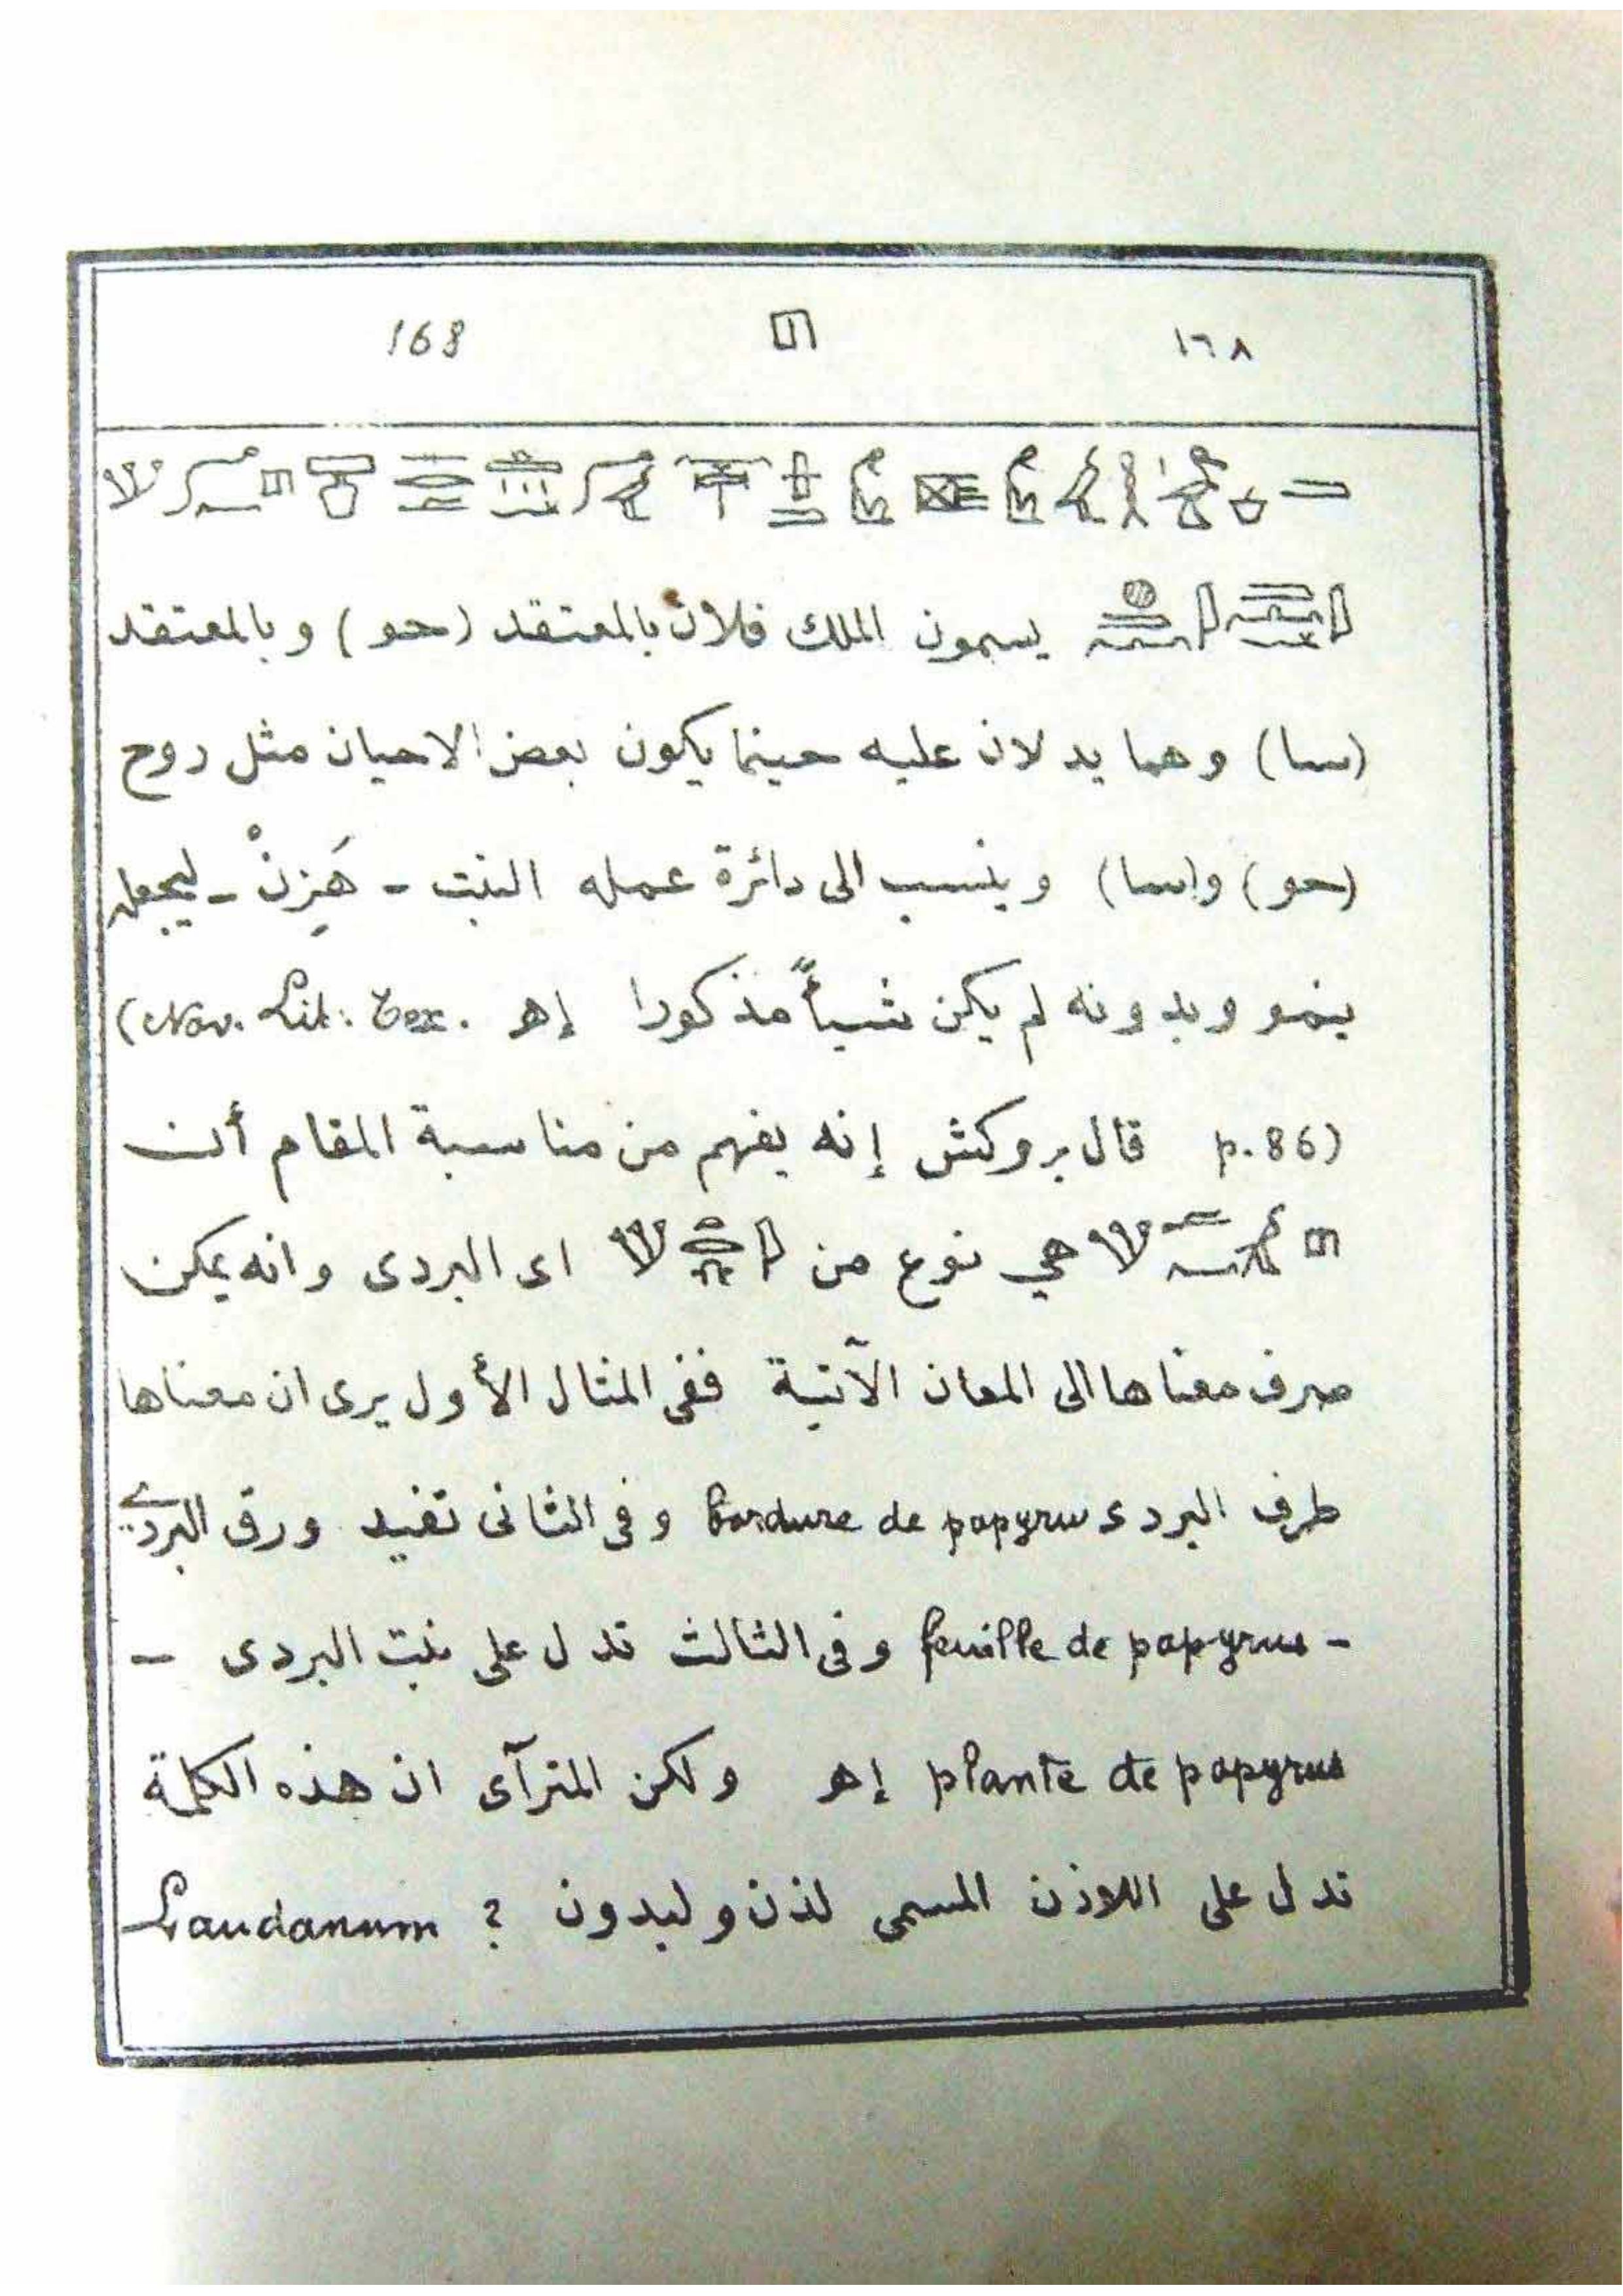 168 𓉔 ١٦٨
يسمون الملك فلان بالمعتقد (حو) وبالمعتقد
(سا) وهما يدلان عليه حينما يكون بعض الاحيان مثل روح
(حو) و(سا) وينسب الى دائرة عمله النبت - هَزِنْ - ليجعله
ينمو وبدونه لم يكن شيأً مذكورا إهـ (Nav. Lit. Tex.
p. 86) قال بروكش إنه يفهم من مناسبة المقام أن
هي نوع من اى البردى وانه يمكن
صرف معناها الى المعان الآتية ففى المثال الأول يرى ان معناها
طرف البردى bordure de papyrus وفى الثانى تفيد ورق البردي
- feuille de papyrus وفى الثالث تدل على نبت البردى -
plante de papyrus إهـ ولكن المترآى ان هذه الكلمة
تدل على اللاذن المسمى لذن وليدون ? Laudanum